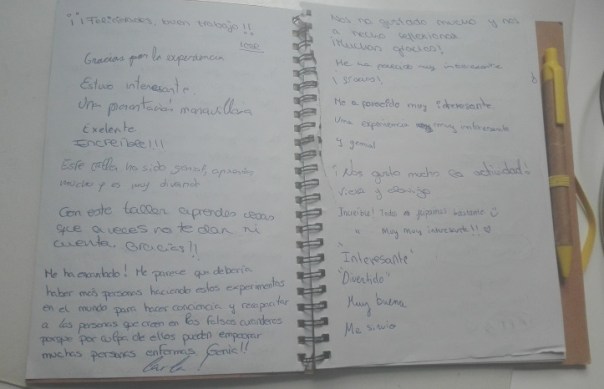 ¡¡Felicidades, buen trabajo!!
Gracias por la experiencia
Estuvo interesante.
Una presentación maravillosa
Exelente
INCREIBLE!!!
Este taller ha sido genial, aprendes
mucho y es muy divertido
Con este taller aprendes cosas
que a veces no te dan ni
cuenta. Gracias!!
Me ha encantado! Me parece que debería
haber más personas haciendo estos experimentos
en el mundo para hacer conciencia y
a las personas que creen en los falsos curanderos
porque por culpa de ellos pueden empeorar
muchas personas enfermas. Genial!!
Carla
Nos ha gustado mucho y nos
a hecho reflexionar
¡Muchas gracias!
Me ha parecido muy interesante
¡Gracias!
Me a parecido muy interesante
Una experiencia muy interesante
Y genial
¡Nos gusto mucho la actividad!
Increible! Todo
Muy Muy interesante!!
"Interesante"
"Divertido"
Muy buena
Me sirvio